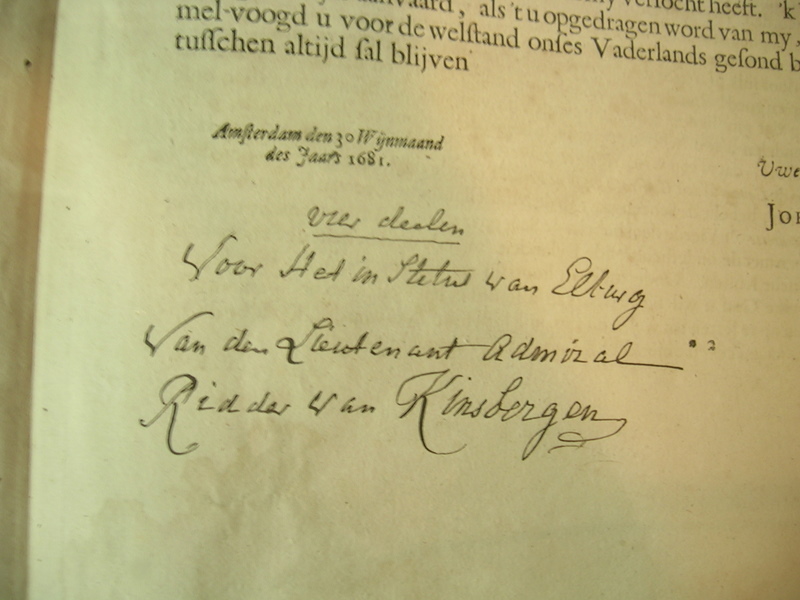 aanvaard, als 't u opgedragen word van my,
mel-voogd u voor de welſtand onſes Vaderlands geſond b
tuſſchen altijd ſal blijven
Amſterdam den 30 Wijnmaand
des Jaars 1681.
Uwe
Joh
vier deelen
Voor Het in Stetut van Elburg
Van den Lieutenant Admiral
Ridder van Kinsbergen